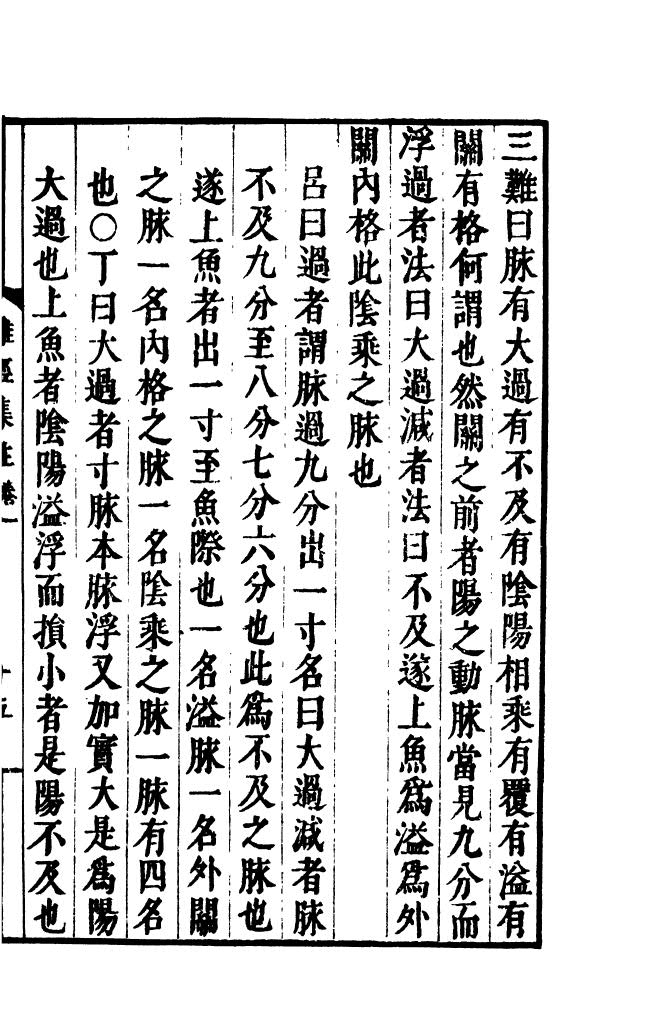 三難曰脉有大過有不及有陰陽相乘有覆有溢有
關有格何謂也然關之前者陽之動脉當見九分而
浮過者法曰大過減者法曰不及遂上魚爲溢爲外
關內格此陰乘之脉也
呂曰過者謂脉過九分出一寸名曰大過減者脉
不及九分至八分七分六分也此爲不及之脉也
遂上魚者出一寸至魚際也一名溢脉一名外關
之脉一名內格之脉一名陰乘之脉一脉有四名
也〇丁曰大過者寸脉本脉浮又加實大是爲陽
大過也上魚者陰陽溢浮而損小者是陽不及也
難經集註卷一
十五